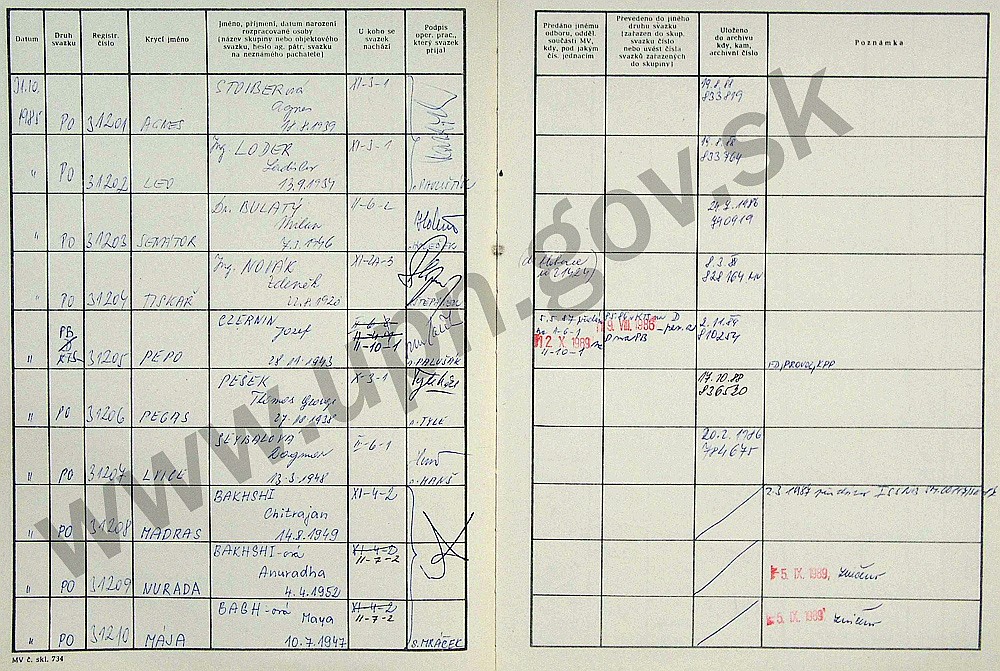 Datum
Druh
svazku
Registr.
číslo
Krycí jméno
Jméno, příjmení, datum narození
rozpracované osoby
(název skupiny nebo objektového
svazku, heslo ag. pátr. svazku
na neznámého pachatele)
U koho se
svazek
nachází
Podpis
oper. prac.,
který svazek
přijal
Předáno jinému
odboru, odděl.
součásti MV,
kdy, pod jakým
čís. jednacím
Převedeno do jiného
druhu svazku
(zařazen do skup.
svazku číslo
nebo uvést čísla
svazků zařazených
do skupiny)
Uloženo
do archivu
kdy, kam,
archivní číslo
Poznámka
31.10.
1985 PO 31201 AGNES
STOIBERová
Agnes
18.8.1939
XI-3-1
19.8.88
833819
" PO 31202 LEO
Ing. LODER
Ladislav
13.9.1934
XI-3-1
833764
" PO 31203 SENÁTOR
Dr. BULATÝ
Milan
7.1.1946
II-6-2
790919
" PO 31204 TISKAŘ
Ing. NOVÁK
Zdeněk
22.8.1920
XI-2A-3
828164
PB
" KTS 31205 PEPO
CZERNIN
Jozef
28.11.1943
II-10-1
p. PALUŠÁK
5.5.87
9. VIII. 1986
12. X. 1989
II-10-1
2.11.89
810254
" PO 31206 PEGAS
PEŠEK
Thomas George
27.10.1938
X-3-1
p. TYLE
17.10.88
836520
" PO 31207 LVICE
Dagmar
13.3.1948
II-6-1
p. HANŠ
20.2.1986
784675
" PO 31208 MADRAS
BAKHSHI
Chitrajan
14.8.1949
XI-4-2
2.3.1987
" PO 31209 NURADA
BAKHSHI-ová
Anuradha
4.4.1952
II-7-2
5. IX. 1989, zničeno
" PO 31210 MÁJA
BAGH-ová
Maya
10.7.1947
XI-4-2
II-7-2
s. MRÁČEK
5. IX. 1989, zničeno
MV č. skl. 734
www.upn.gov.sk